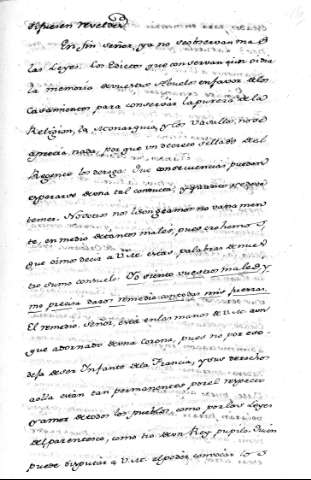 En fin señor, ya no se observan mas
las Leyes. Los Edictos que conservan
la memoria de vuestros Abuelos en favor de los
Casamientos para conservar la pureza de la
Religion, la Monarquia y los Vasallos, no se
aprecia nada, por que un decreto sellado del
Regente lo deroga. Que consecuencias pueden
esperarse de una tal conducta, y quanto se deve
temer. Nosotros nos lisongeamos no vanamen
te, en medio de tantos males, pues crehemos
que oimos decir a V. Mt. estas palabras de nues
tro sumo consuelo. Yo siento vuestros males, y
me precisa daros remedio con todas mis fuerzas.
El remedio, Señor, está en las manos de V. Mt. aun
que adornado de una corona, pues no por eso
deja de ser Infante de la Francia, y sus derechos
a ella estan tan permanentes por el respecto
y amor de todos los pueblos, como por las Leyes
del parentesco, como tio de un Rey pupilo. Quien
puede disputar a V. Mt. el poder convocar los